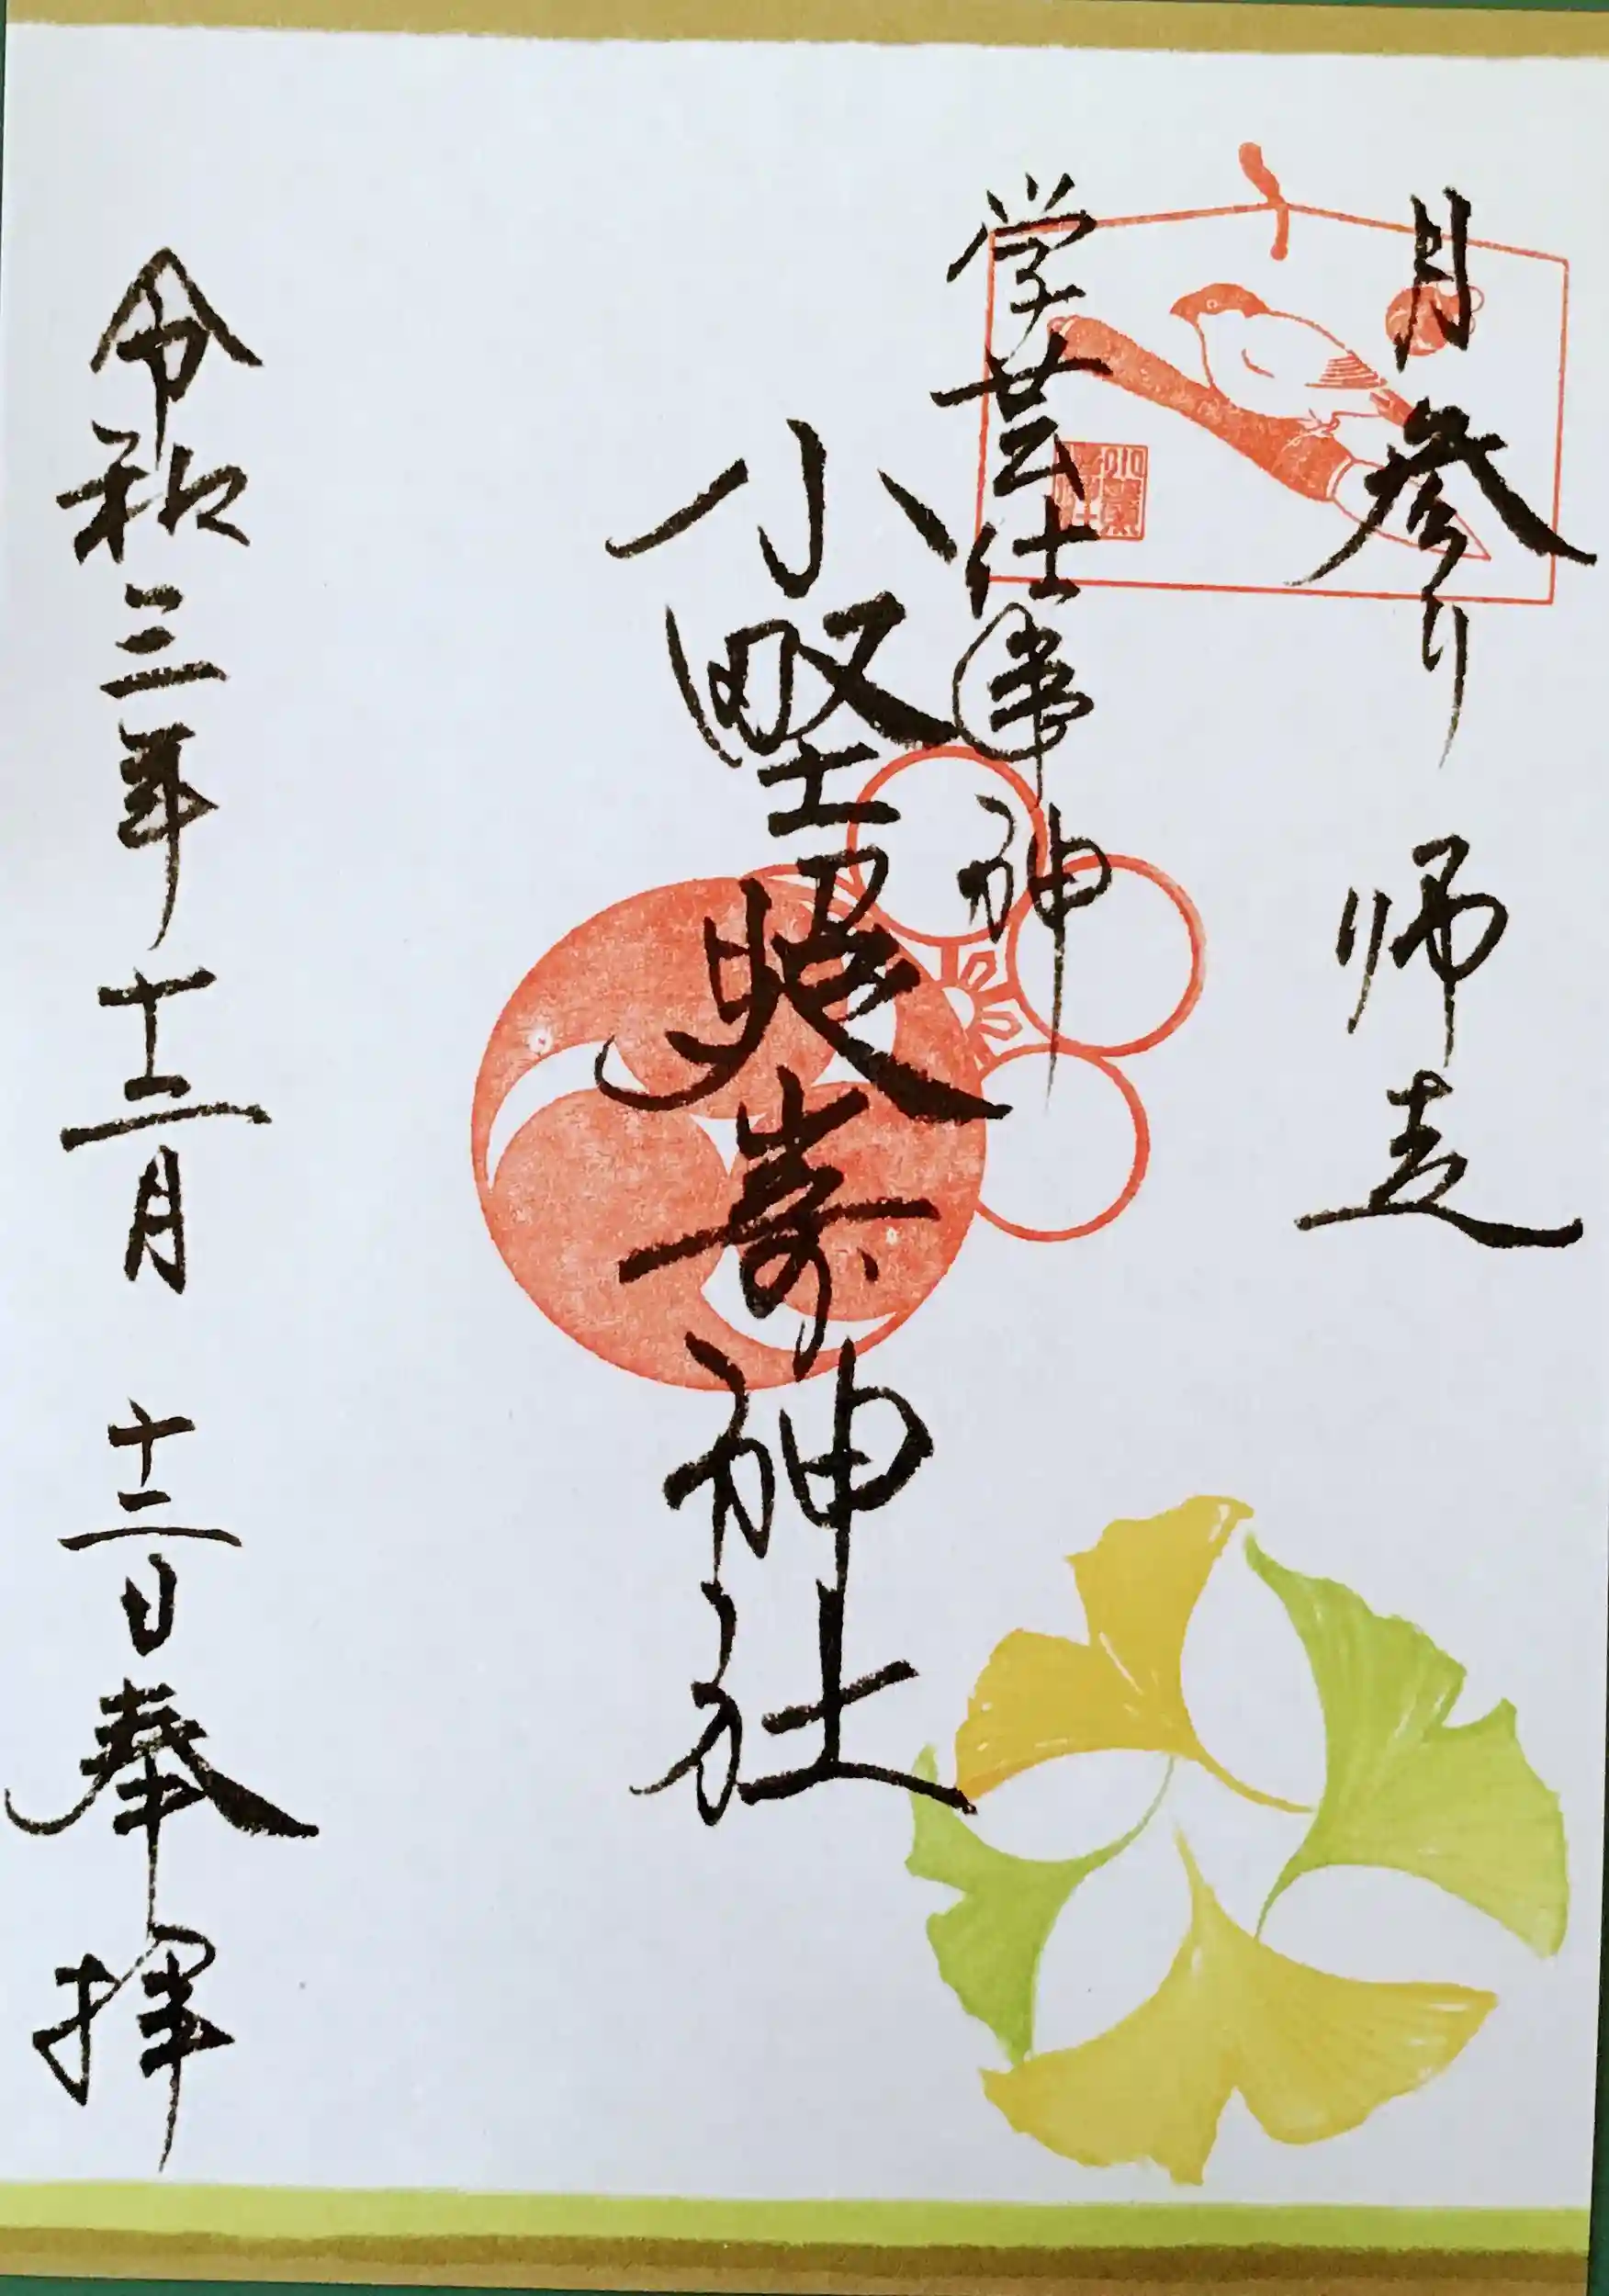 月参り 師走
学芸仕事神
小野照崎神社
令和三年十二月 十二日奉拝